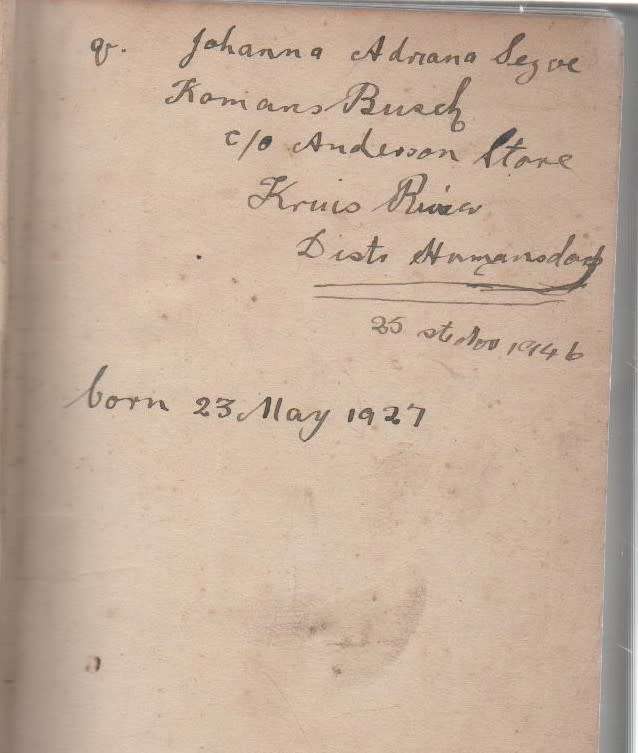 Johanna Adriana Segoe
Komans Busch
c/o Anderson Store
Kruis River
Dists Humansdorp
25 ste Nov 1946
born 23 May 1927